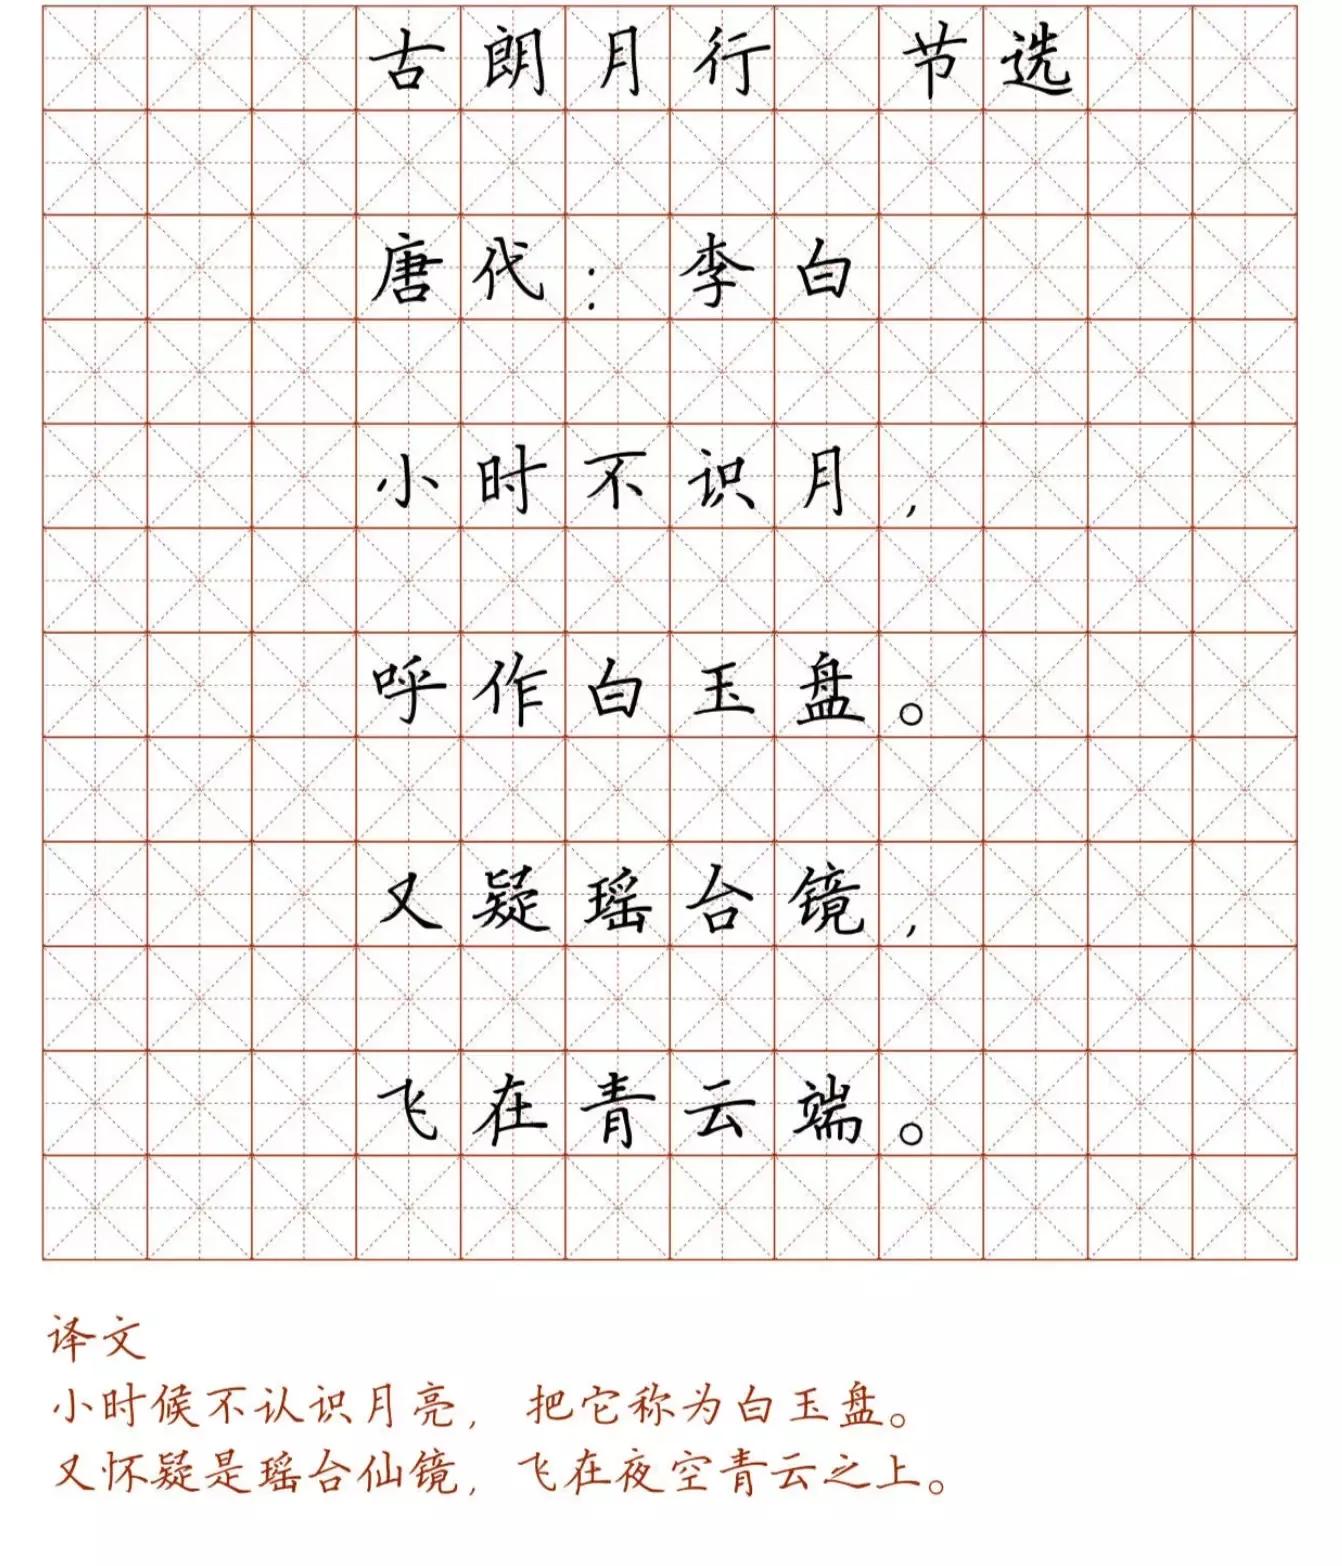 古朗月行 节选
唐代：李白
小时不识月，
呼作白玉盘。
又疑瑶台镜，
飞在青云端。
译文
小时候不认识月亮，把它称为白玉盘。
又怀疑是瑶台仙镜，飞在夜空青云之上。